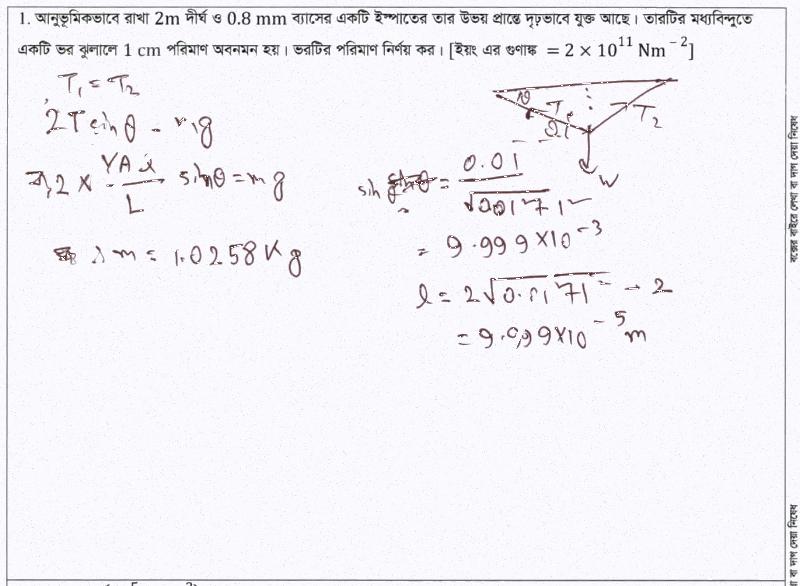 1. আনুভূমিকভাবে রাখা 2m দীর্ঘ ও 0.8 mm ব্যাসের একটি ইস্পাতের তার উভয় প্রান্তে দৃঢ়ভাবে যুক্ত আছে। তারটির মধ্যবিন্দুতে
একটি ভর ঝুলালে 1 cm পরিমাণ অবনমন হয়। ভরটির পরিমাণ নির্ণয় কর। [ইয়ং এর গুণাঙ্ক = 2 × 10¹¹ Nm⁻²]
T₁ = T₂
2T sin θ = mg
বা, 2 × YAl/L sinθ = mg
m = 1.0258 Kg
θ T₁ T₂
W
sin θ = 0.01/√(0.01²+1²)
= 9.999×10⁻³
l = 2√(0.01²+1²) - 2
= 9.999×10⁻⁵ m
বক্সের বাইরে লেখা বা দাগ দেয়া নিষেধ
বা দাগ দেয়া নিষেধ